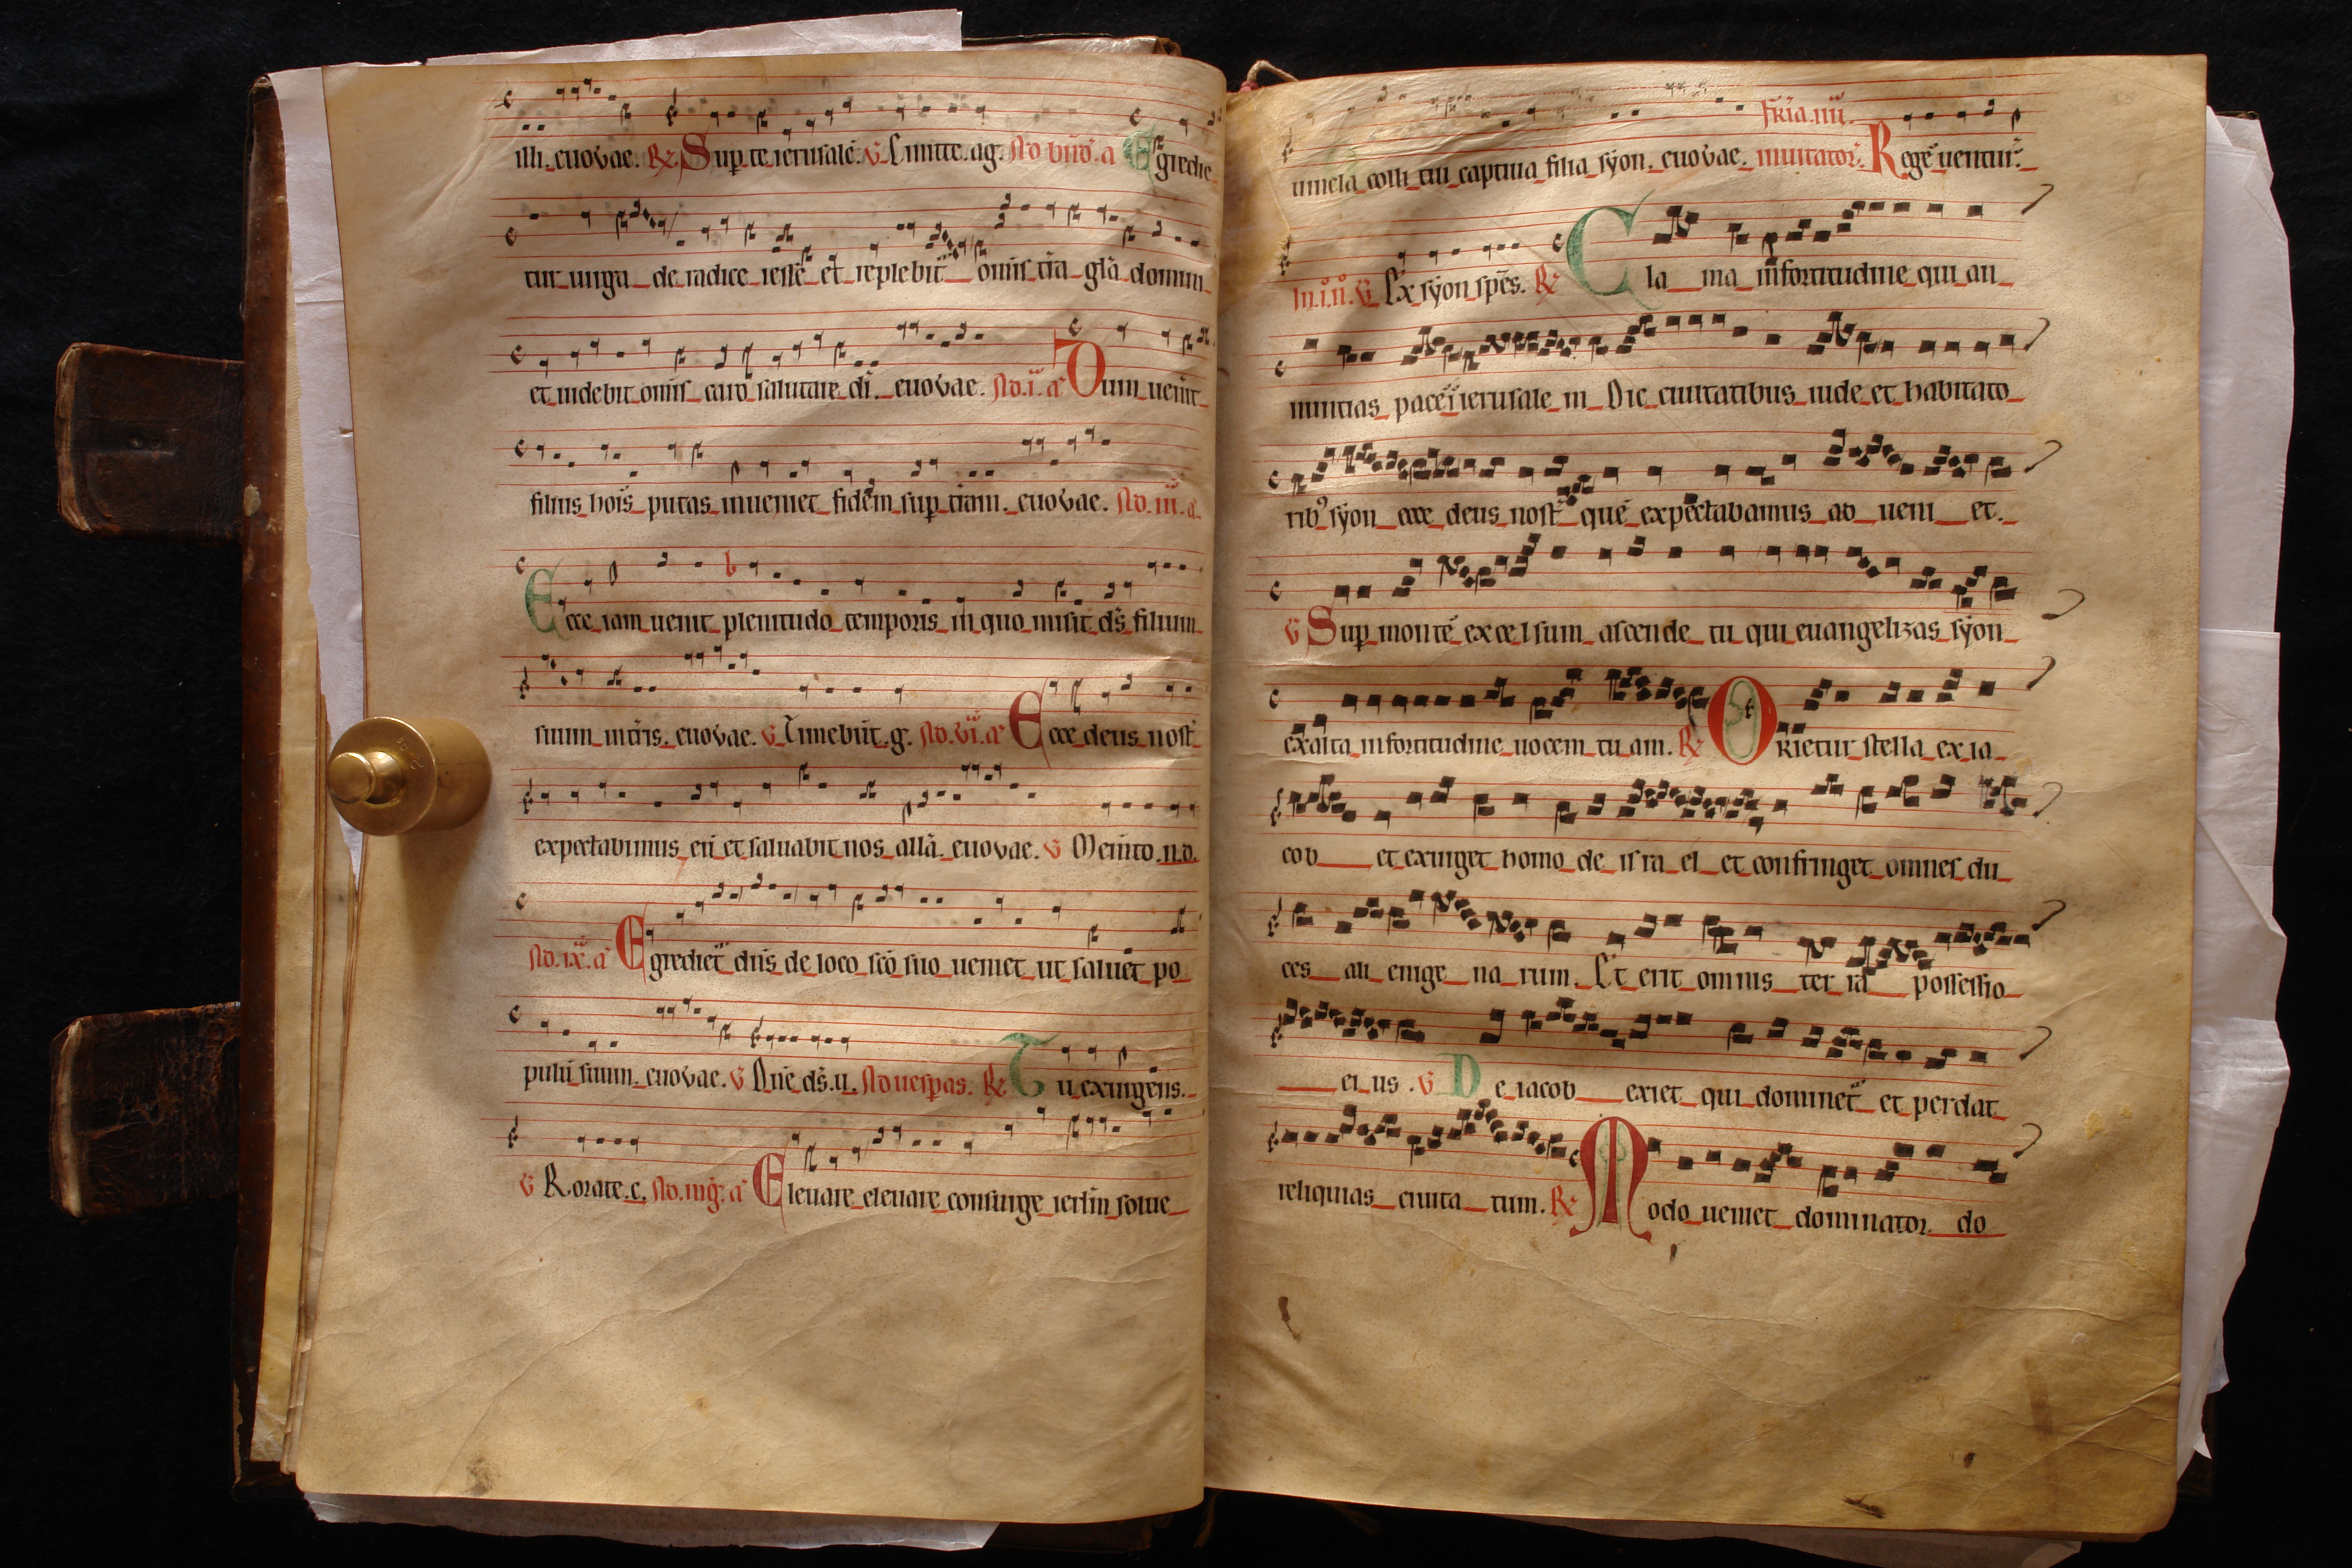 illi. euovae. R Sup te ierusalē. V Emitte. ag. Ad bn̄d. a Egredie
tur uirga de radice iesse et replebit̄ omīs tr̄a gl̄a domini
et uidebit omīs caro salutare dī. euovae. Ad. i. a Dum uen̄it
filius hoīs putas inueniet fidem sup terram. euovae. Ad. iii. a
Ecce iam uenit plenitudo temporis in quo misit ds̄ filium
suum in tr̄is. euovae. V Timebūt. g. Ad. vi. a Ecce deus nost̄
expectabimus eū et saluabit nos all̄a. euovae. V Memto. n. d.
Ad. ix. a Egrediet̄ dn̄s de loco sc̄o suo ueniet ut saluet po
pulū suum. euovae. V Dn̄e ds̄. u. Ad uesp̄as. R Tu exurgens.
V Rorate. c. Ad. mg̅. a Eleuare eleuare consurge ierl̄m solue
uincla colli tui captiua filia syon. euovae. Fr̄ia. iiii. inuitator. Regē uentur̄.
In. i. n. V Ex syon spēs. R Clama in fortitudine qui an
nuntias pacē ī ierusalem Dic ciuitatibus iude et habitato
rib' syon ecce deus nost̄ quē expectabamus ad ueni et.
V Sup montē excelsum ascende tu qui euangelizas syon
exalta in fortitudine uocem tuam. R Orietur stella ex ia
cob et exurget homo de israel et confringet omnes du
ces alienigenarum. Et erit omnis terra possessio
eius. V De iacob exiet qui dominet̄ et perdat
reliquias ciuitatum. R Modo ueniet dominator do